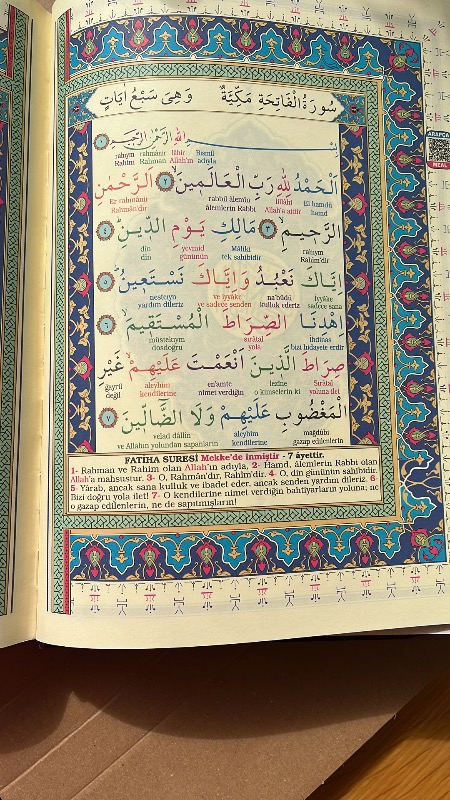 سُورَةُ الْفَاتِحَةِ مَكِّيَّةٌ وَهِيَ سَبْعُ اٰيَاتٍ
بِسْمِ اللّٰهِ الرَّحْمٰنِ الرَّحِيمِ ١
rahıym rahmânir lâhir Bismil
Rahîm Rahman Allah'ın adıyla
اَلْحَمْدُ لِلّٰهِ رَبِّ الْعَالَمِينَ ٢ اَلرَّحْمٰنِ
Er rahmânir rabbil âlemîn lillâhi El hamdü
Rahmân'dır âlemlerin Rabbi Allah'a aittir hamd
الرَّحِيمِ ٣ مَالِكِ يَوْمِ الدِّينِ ٤
dîn yevmid Mâliki rahıym
din gününün tek sahibidir Rahîm'dir
اِيَّاكَ نَعْبُدُ وَاِيَّاكَ نَسْتَعِينُ ٥
nesteıyn ve iyyâke na'büdü İyyâke
yardım dileriz ve sadece senden kulluk ederiz sadece sana
اِهْدِنَا الصِّرَاطَ الْمُسْتَقِيمَ ٦
müstekıym sırâtal ihdinas
dosdoğru yola bizi hidayete erdir
صِرَاطَ الَّذِينَ اَنْعَمْتَ عَلَيْهِمْ غَيْرِ
ğayril aleyhim en'amte lezîne Sırâtal
değil kendilerine nimet verdiğin o kimselerin ki yoluna ilet
الْمَغْضُوبِ عَلَيْهِمْ وَلَا الضَّالِّينَ ٧
velad dâllîn aleyhim mağdûbi
ve Allahın yolundan sapanların kendilerine gazap edilenlerin
FATİHA SURESİ Mekke'de inmiştir - 7 âyettir.
1- Rahman ve Rahim olan Allah'ın adıyla, 2- Hamd, âlemlerin Rabbi olan
Allah'a mahsustur. 3- O, Rahmân'dır, Rahîm'dir. 4- O, din gününün sahibidir.
5- Yârab, ancak sana kulluk ve ibadet eder, ancak senden yardım dileriz. 6-
Bizi doğru yola ilet! 7- O kendilerine nimet verdiğin bahtiyarların yoluna; ne
o gazap edilenlerin, ne de sapıtmışların!
ARAPÇA
MEAL